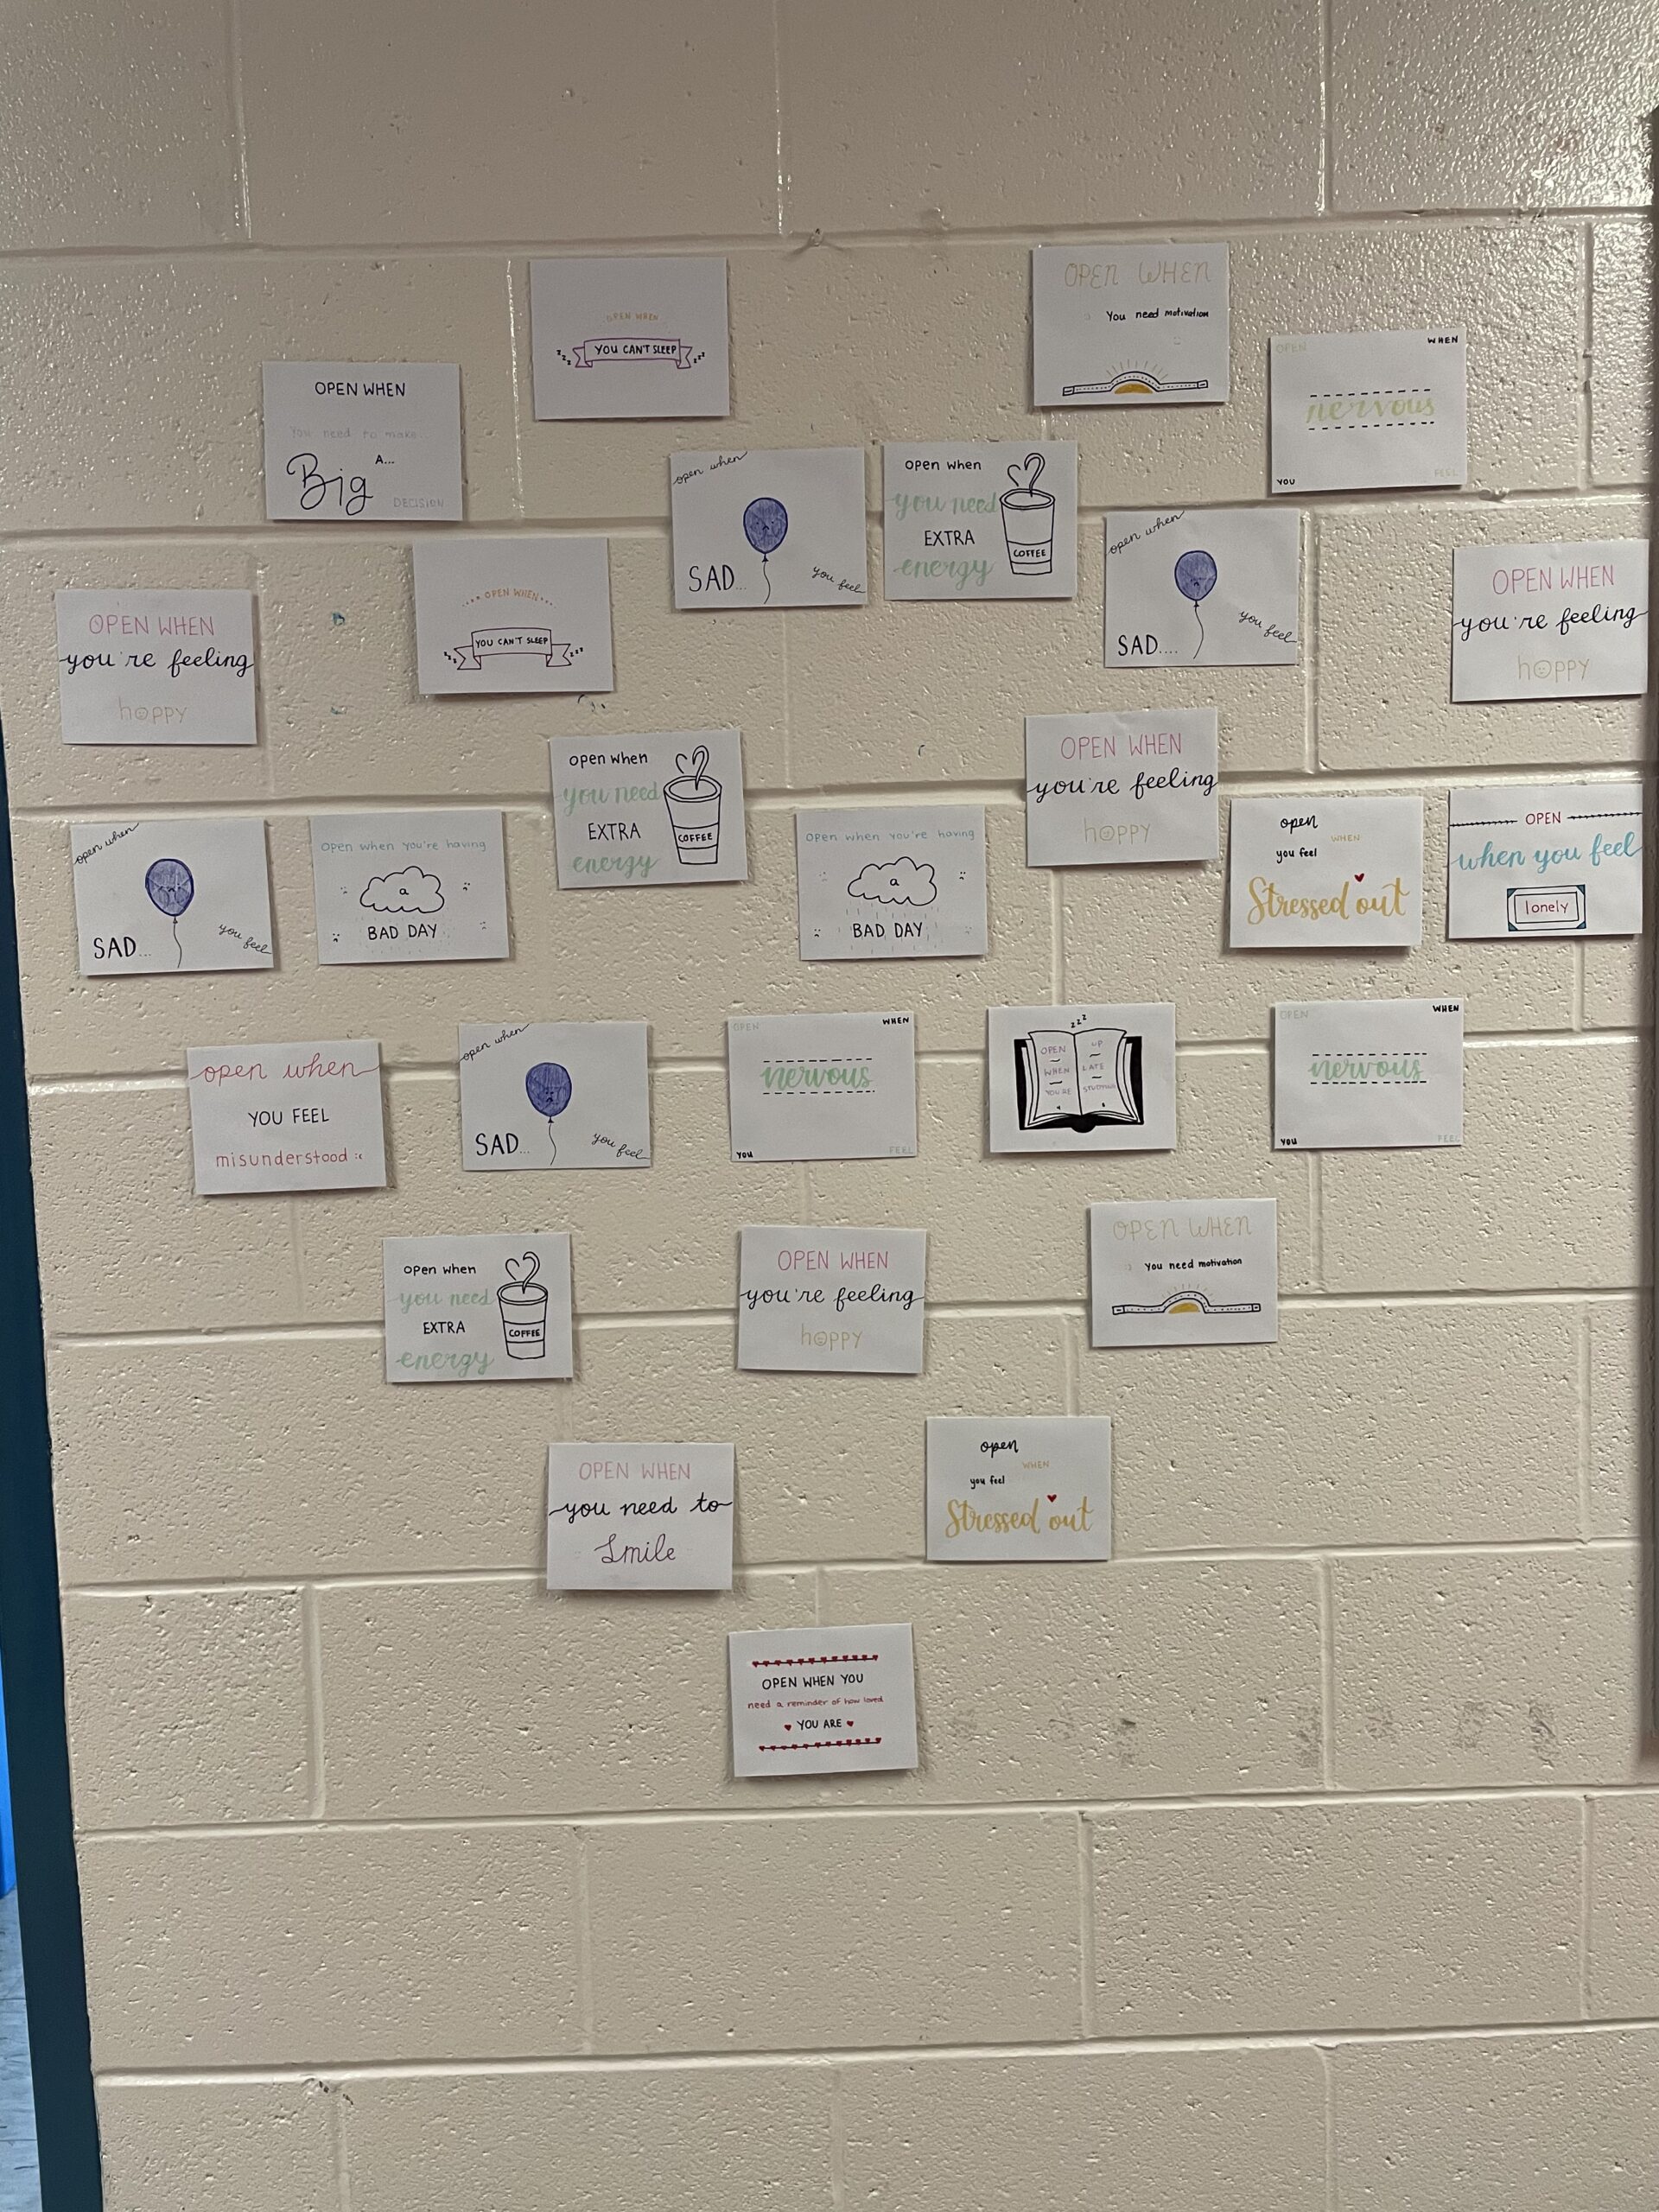 OPEN WHEN
YOU CAN'T SLEEP
zzz
zzz
OPEN WHEN
You need motivation
OPEN WHEN
nervous
YOU FEEL
OPEN WHEN
You need to make
A...
Big
DECISION
open when
SAD...
you feel
open when
you need
EXTRA
energy
COFFEE
open when
SAD....
you feel
OPEN WHEN
you're feeling
happy
OPEN WHEN
you're feeling
happy
OPEN WHEN
YOU CAN'T SLEEP
zzz
zzz
open when
you need
EXTRA
energy
COFFEE
OPEN WHEN
you're feeling
happy
open when
SAD...
you feel
Open when you're having
a
BAD DAY
Open when you're having
a
BAD DAY
open
WHEN
you feel
Stressed out
OPEN
when you feel
lonely
open when
YOU FEEL
misunderstood :(
open when
SAD...
you feel
OPEN WHEN
nervous
you FEEL
zzz
OPEN
WHEN
YOU'RE
UP
LATE
STUDYING
OPEN WHEN
nervous
you FEEL
open when
you need
EXTRA
energy
COFFEE
OPEN WHEN
you're feeling
happy
OPEN WHEN
You need motivation
OPEN WHEN
you need to
Smile
open
WHEN
you feel
Stressed out
OPEN WHEN YOU
need a reminder of how loved
YOU ARE